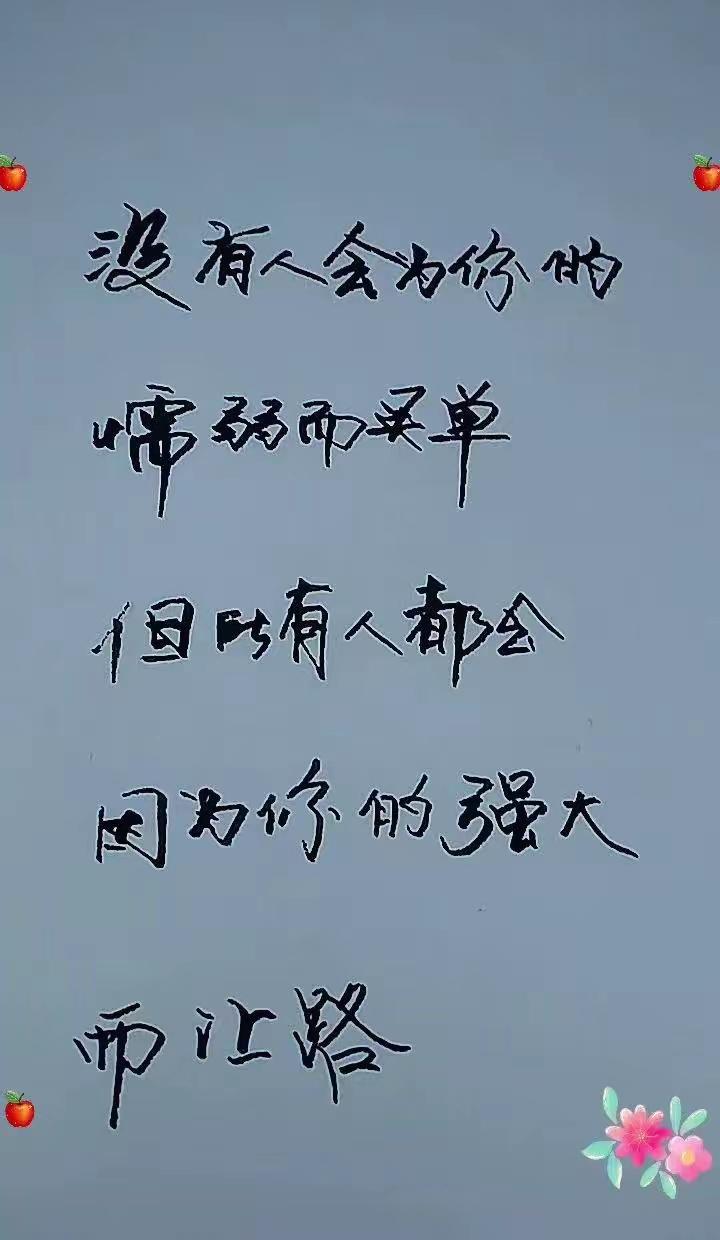 没有人会为你的
懦弱而买单
但所有人都会
因为你的强大
而让路